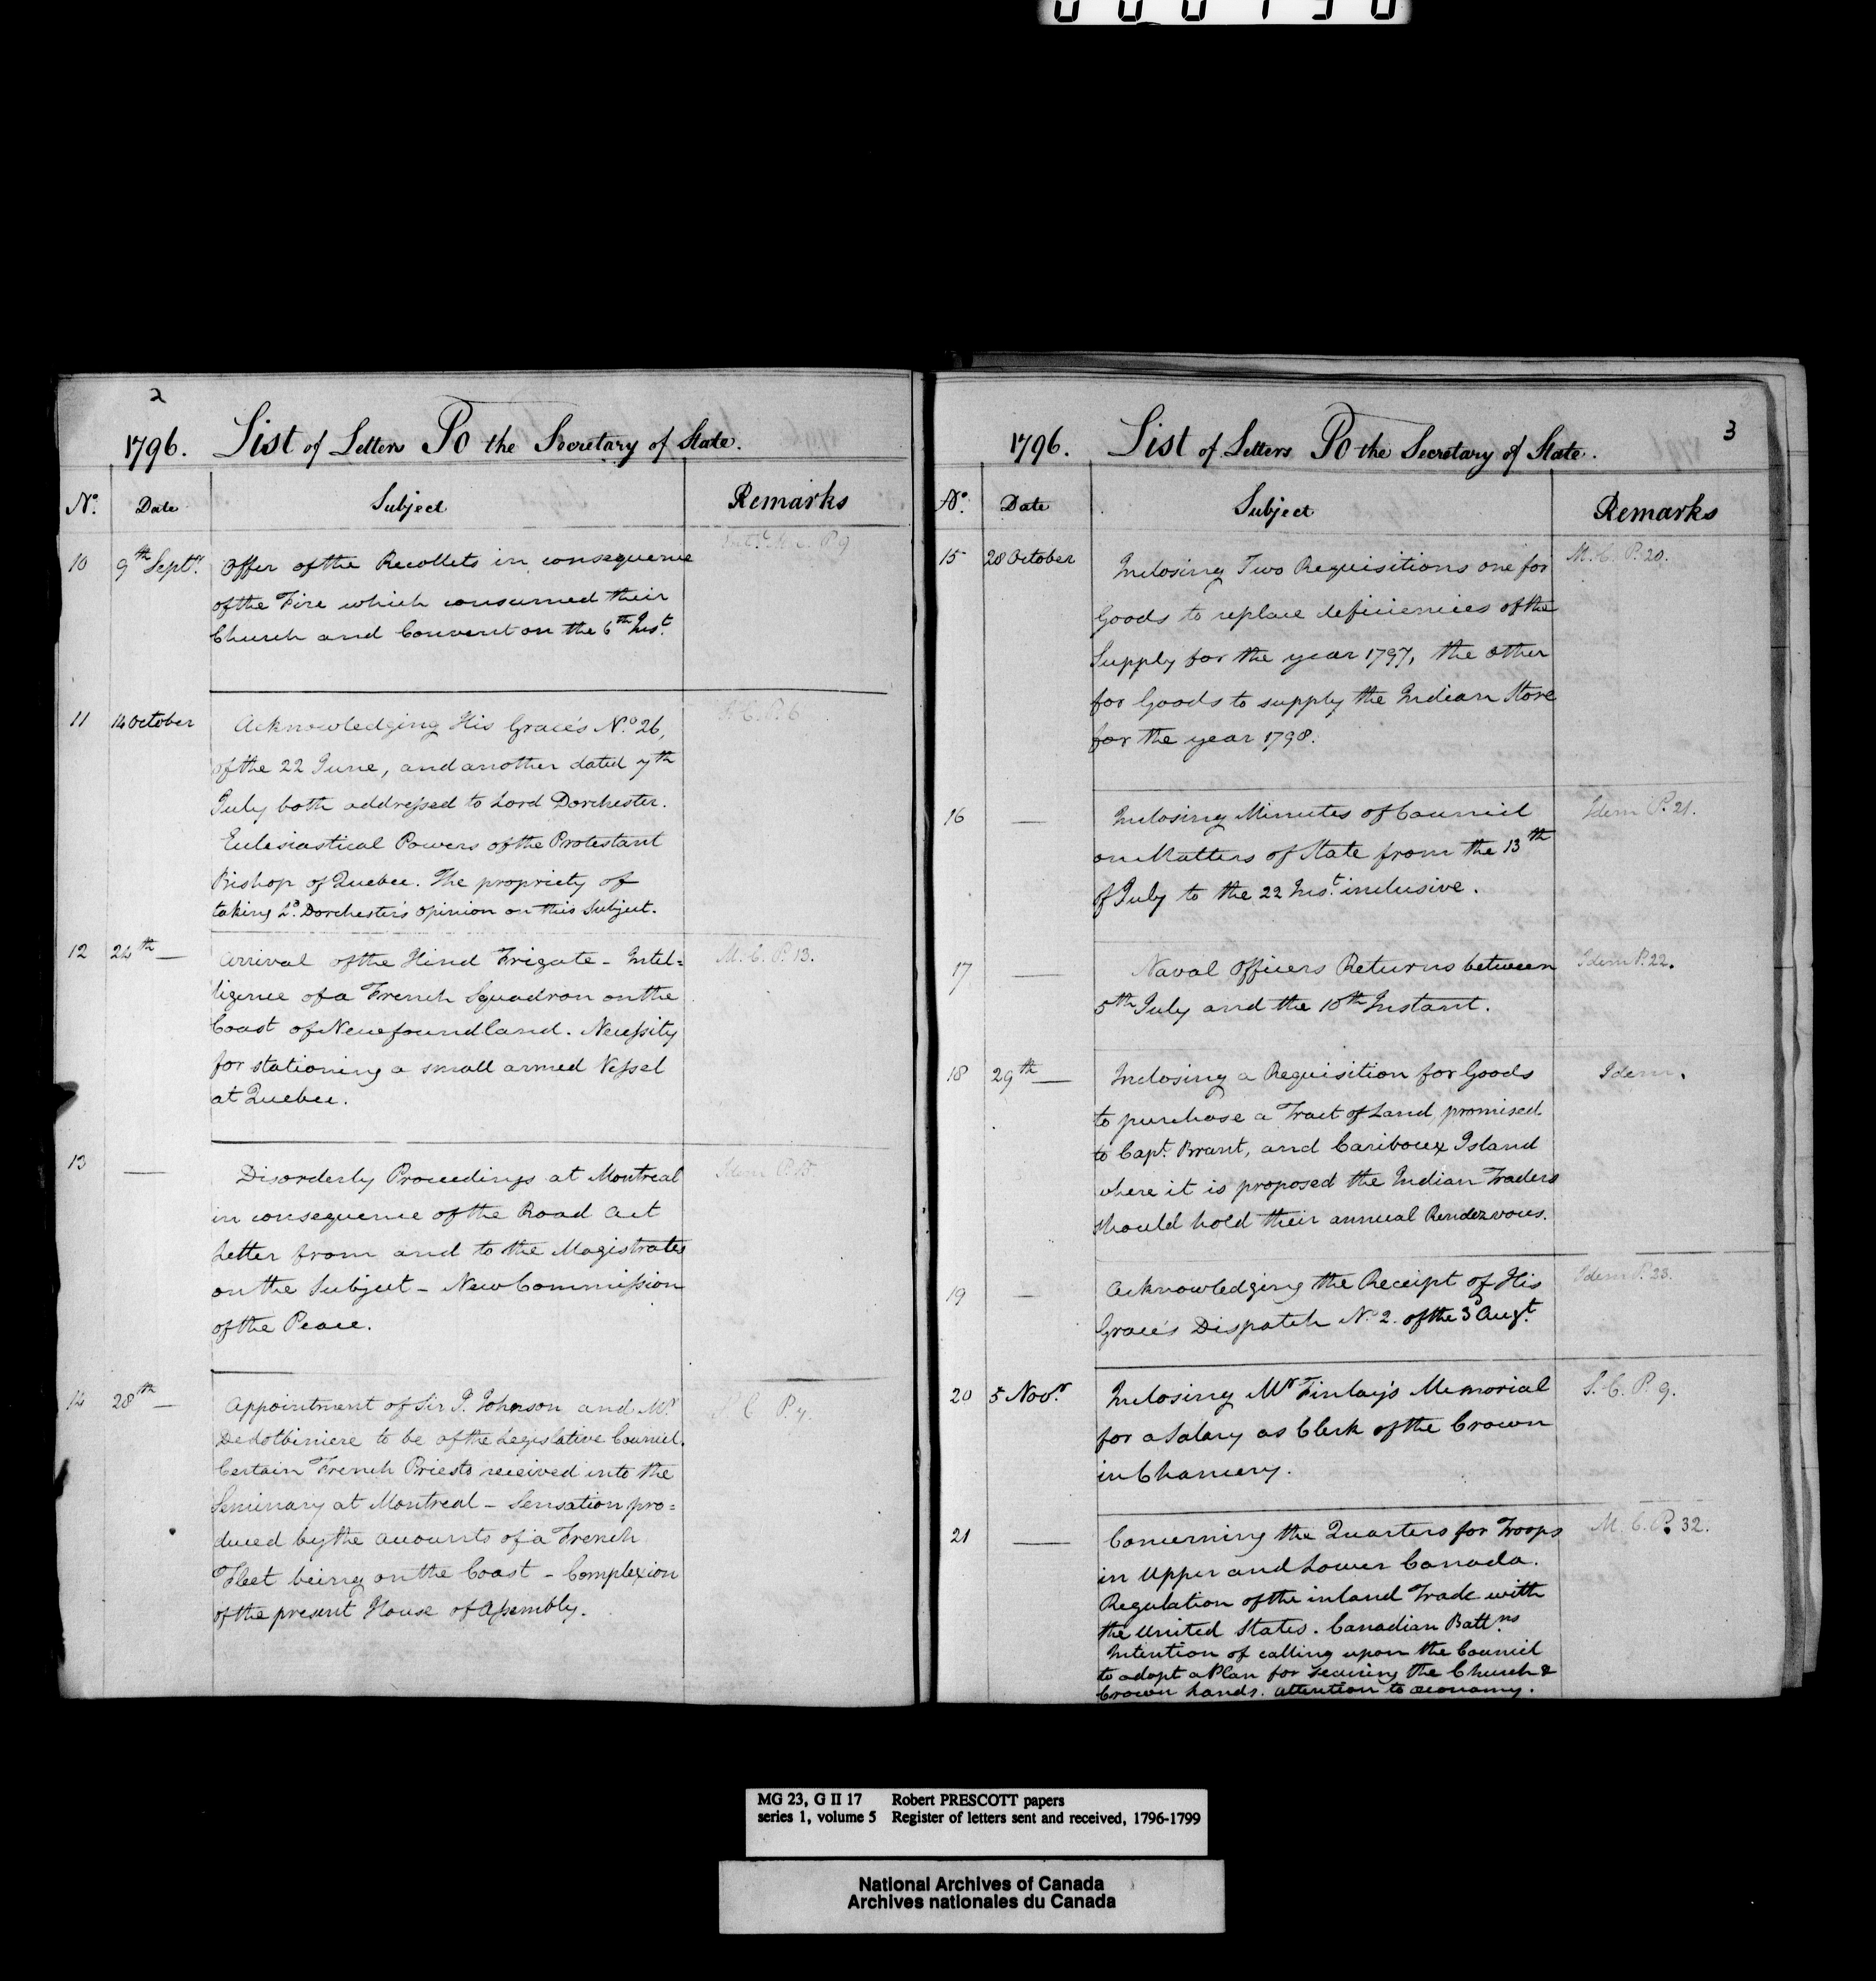 2
1796. List of Letters To the Secretary of State.
No. Date Subject Remarks
10 9th Septr. Offer of the Recollets in consequence
of the Fire which consumed their
Church and Convent on the 6th Inst.
P. 9
11 14 October Acknowledging His Grace's No. 26,
of the 22 June, and another dated 7th
July both addressed to Lord Dorchester.
Eclesiastical Powers of the Protestant
Bishop of Quebec. The propriety of
taking Ld. Dorchester's opinion on this Subject.
P. 6
12 24th — Arrival of the Hind Frigate - Intel=
ligence of a French Squadron on the
Coast of Newfoundland. Necessity
for stationing a small armed Vessel
at Quebec.
M. C. P. 13.
13 — Disorderly Proceedings at Montreal
in consequence of the Road Act
Letter from and to the Magistrates
on the Subject - New Commission
of the Peace.
Idem P. 15
14 28th — Appointment of Sir J. Johnson and Mr.
DeLotbiniere to be of the Legislative Council.
Certain French Priests received into the
Seminary at Montreal - Sensation pro=
duced by the accounts of a French
Fleet being on the Coast - Complexion
of the present House of Assembly.
C P. 7.
3
1796. List of Letters To the Secretary of State.
No. Date Subject Remarks
15 28 October Inclosing Two Requisitions one for
Goods to replace deficiencies of the
Supply for the year 1797, the other
for Goods to supply the Indian Store
for the year 1798.
M. C. P. 20.
16 — Inclosing Minutes of Council
on Matters of State from the 13th
of July to the 22 Inst. inclusive.
Idem P. 21.
17 — Naval Officers Returns between
5th July and the 10th Instant.
Idem P. 22.
18 29th — Inclosing a Requisition for Goods
to purchase a Tract of Land promised
to Capt. Brant, and Cariboux Island
where it is proposed the Indian Traders
should hold their annual Rendezvous.
Idem.
19 — Acknowledging the Receipt of His
Grace's Dispatch No. 2. of the 3d Augt.
Idem P. 23.
20 5 Novr. Inclosing Mr Finlay's Memorial
for a Salary as Clerk of the Crown
in Chancery.
S. C. P. 9.
21 — Concerning the Quarters for Troops
in Upper and Lower Canada.
Regulation of the inland Trade with
the United States. Canadian Battns
Intention of calling upon the Council
to adopt a Plan for securing the Church &
Crown Lands. attention to œconomy.
M. C. P. 32.
MG 23, G II 17 Robert PRESCOTT papers
series 1, volume 5 Register of letters sent and received, 1796-1799
National Archives of Canada
Archives nationales du Canada